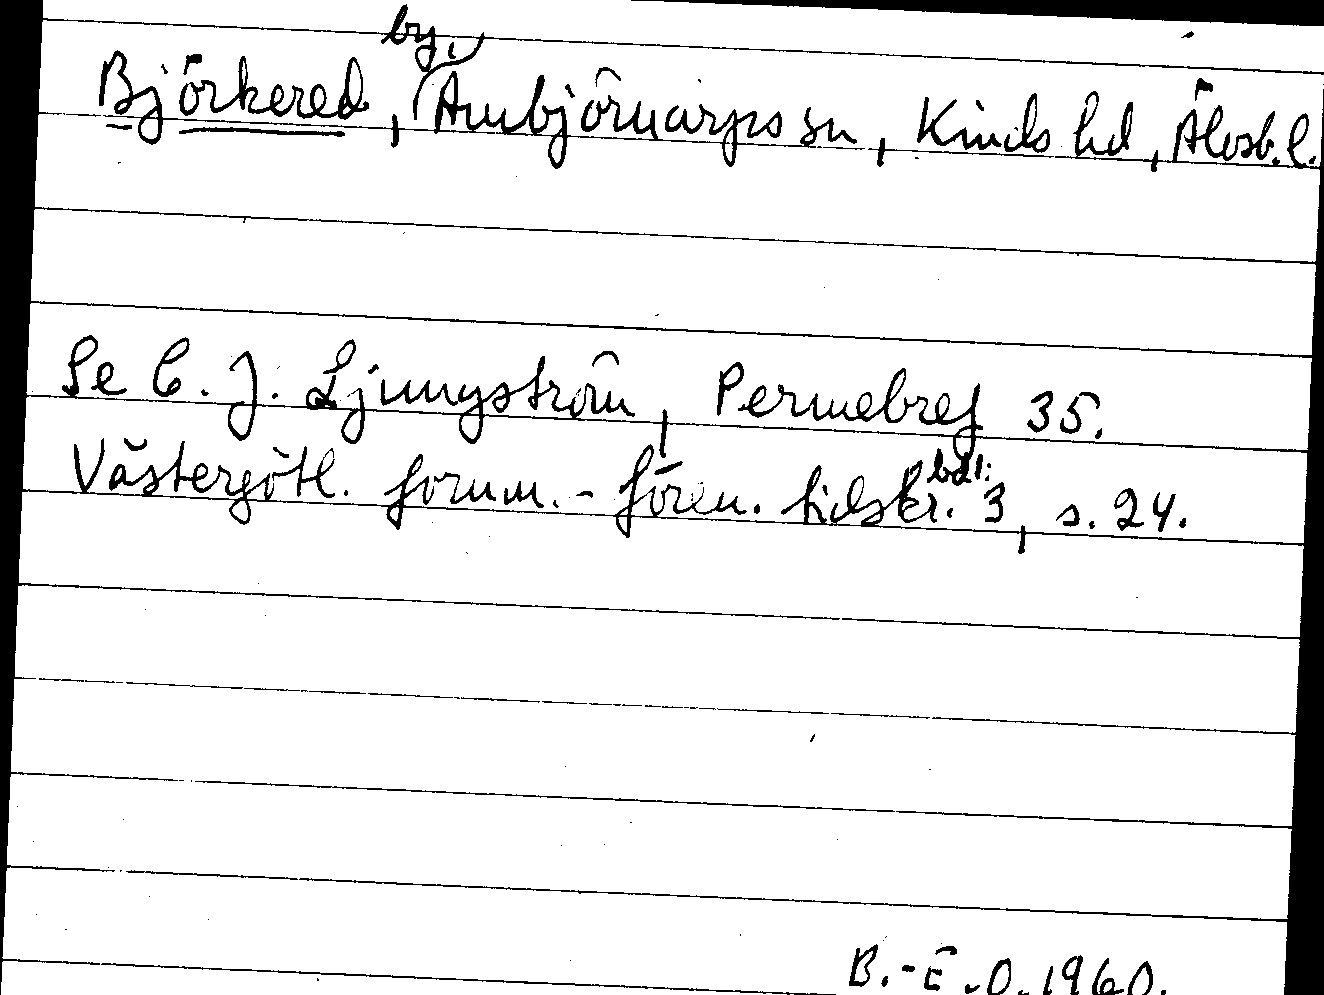 Björkered, by, Ambjörnarps sn, Kinds hd, Älvsb. l.
Se C. J. Ljungström, Permebref 35.
Västergötl. fornm.-fören. tidskr. bd 1: 3, s. 24.
B.-E. O. 1960.